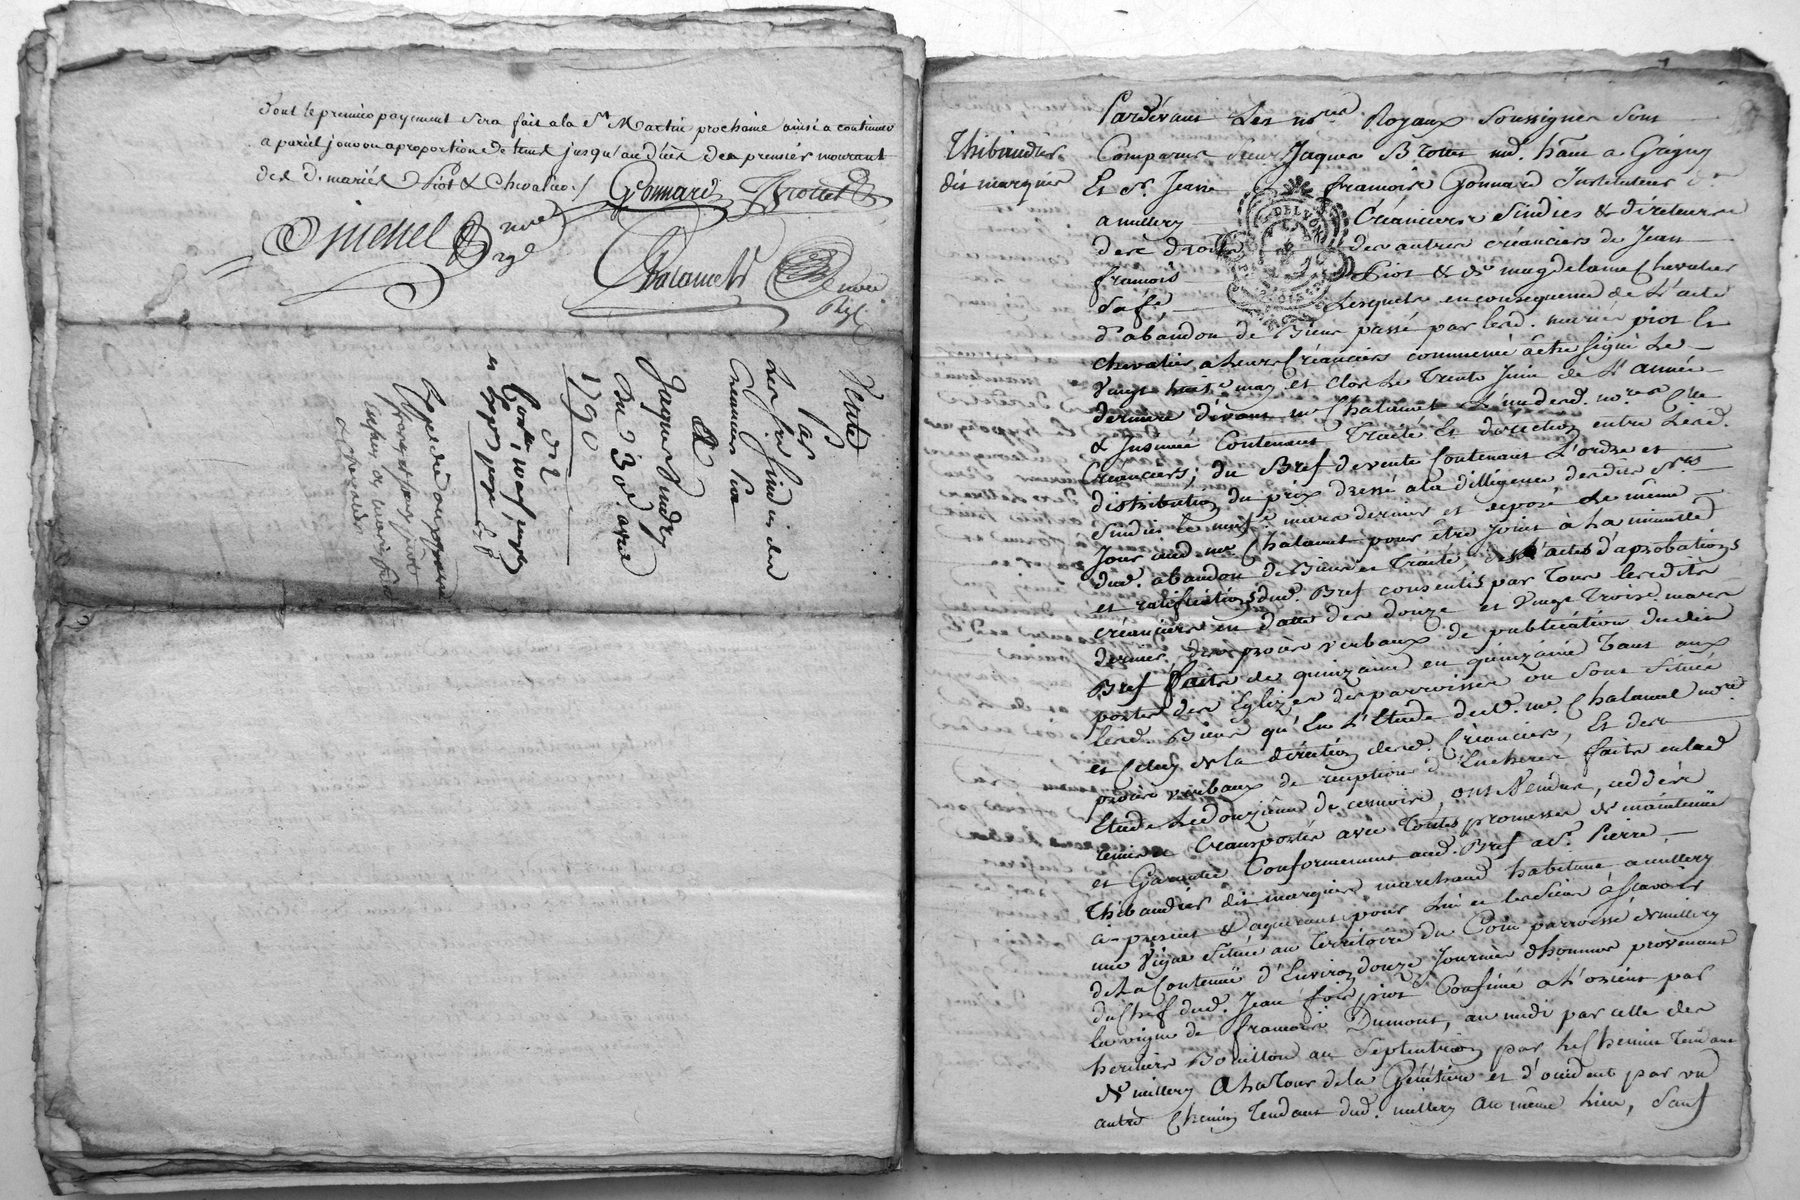 Dont le premier payement sera fait a la St Martin prochaine ainsi a continuer
a pareil jour ou aproportion de tems jusqu'au décès des premier mourant
des d. mariés Piot & Chevalier /. Gonnard JBrottet
Michel nore
Chalamel
Vente
Par
Les srs Sindics des
Creanciers Piot
A
Jaques
du 30 avril
1790
Thibaudier
dit marquis
Pardevant Les nres Royaux Soussignés Sont
Comparus Sieur Jaques Brottet md. habt a Grigny
Et Sr Jean françois Gonnard Instituteur
a millery Créanciers Sindics & directeurs
des droits des autres créanciers de Jean
françois Piot & De magdelaine Chevalier
Sa fe, Lesquels en consequence de L'acte
d'abandon de Biens passé par lesd. mariés piot Et
Chevalier a Leurs Créanciers commencé à être signé Le
Vingt huit may et clos Le Trente Juin de L'année
derniere devant me Chalamel L'un desd. nores Cllé
& Insinué Contenant Traité Et direction entre Lesd.
Créanciers; du Bref de vente Contenant L'ordre et
distribution du prix dressé a la dilligence desdits Srs
Sindics le neuf mars dernier et déposé Le même
Jour aud. me Chalamel pour être Joint à La minutte
dud. abandon de Biens et Traité, des actes d'aprobations
et ratifications dud. Bref consentis par Tous lesdits
créanciers en datte des douze et Vingt Trois mars
dernier, des procès verbaux de publication dudit
Bref faits de quinzaine en quinzaine Tant aux
portes des Eglizes des parroisses ou sont Situés
lesd. Biens qu'En L'Etude dud. me. Chalamel nore
et Celuy de la direction desd. Créanciers, Et des
procès verbaux de receptions d'Encheres faits en lad.
Etude Le douzième de ce mois, ont Vendus, ceddés
remis et Transportés avec Toutes promesses de maintenue
et Garantie Conformement aud. Bref a Sr. Pierre
Thibaudier dit marquis marchand habitant a millery
ci-present & aquerant pour Lui et les Siens à Scavoir
une Vigne Située au Territoire du Coin parroisse de millery
de La Contenue d'Environ douze Journées d'hommes provenant
du Chef dud. Jean fois piot Confinée a L'orient par
la vigne de françois Dumont, au midi par celle des
heritiers Bouillon au Septentrion par Le Chemin Tendant
de millery A La Tour de la et d'occident par un
autre Chemin Tendant dud. millery Au même Lieu, Sauf